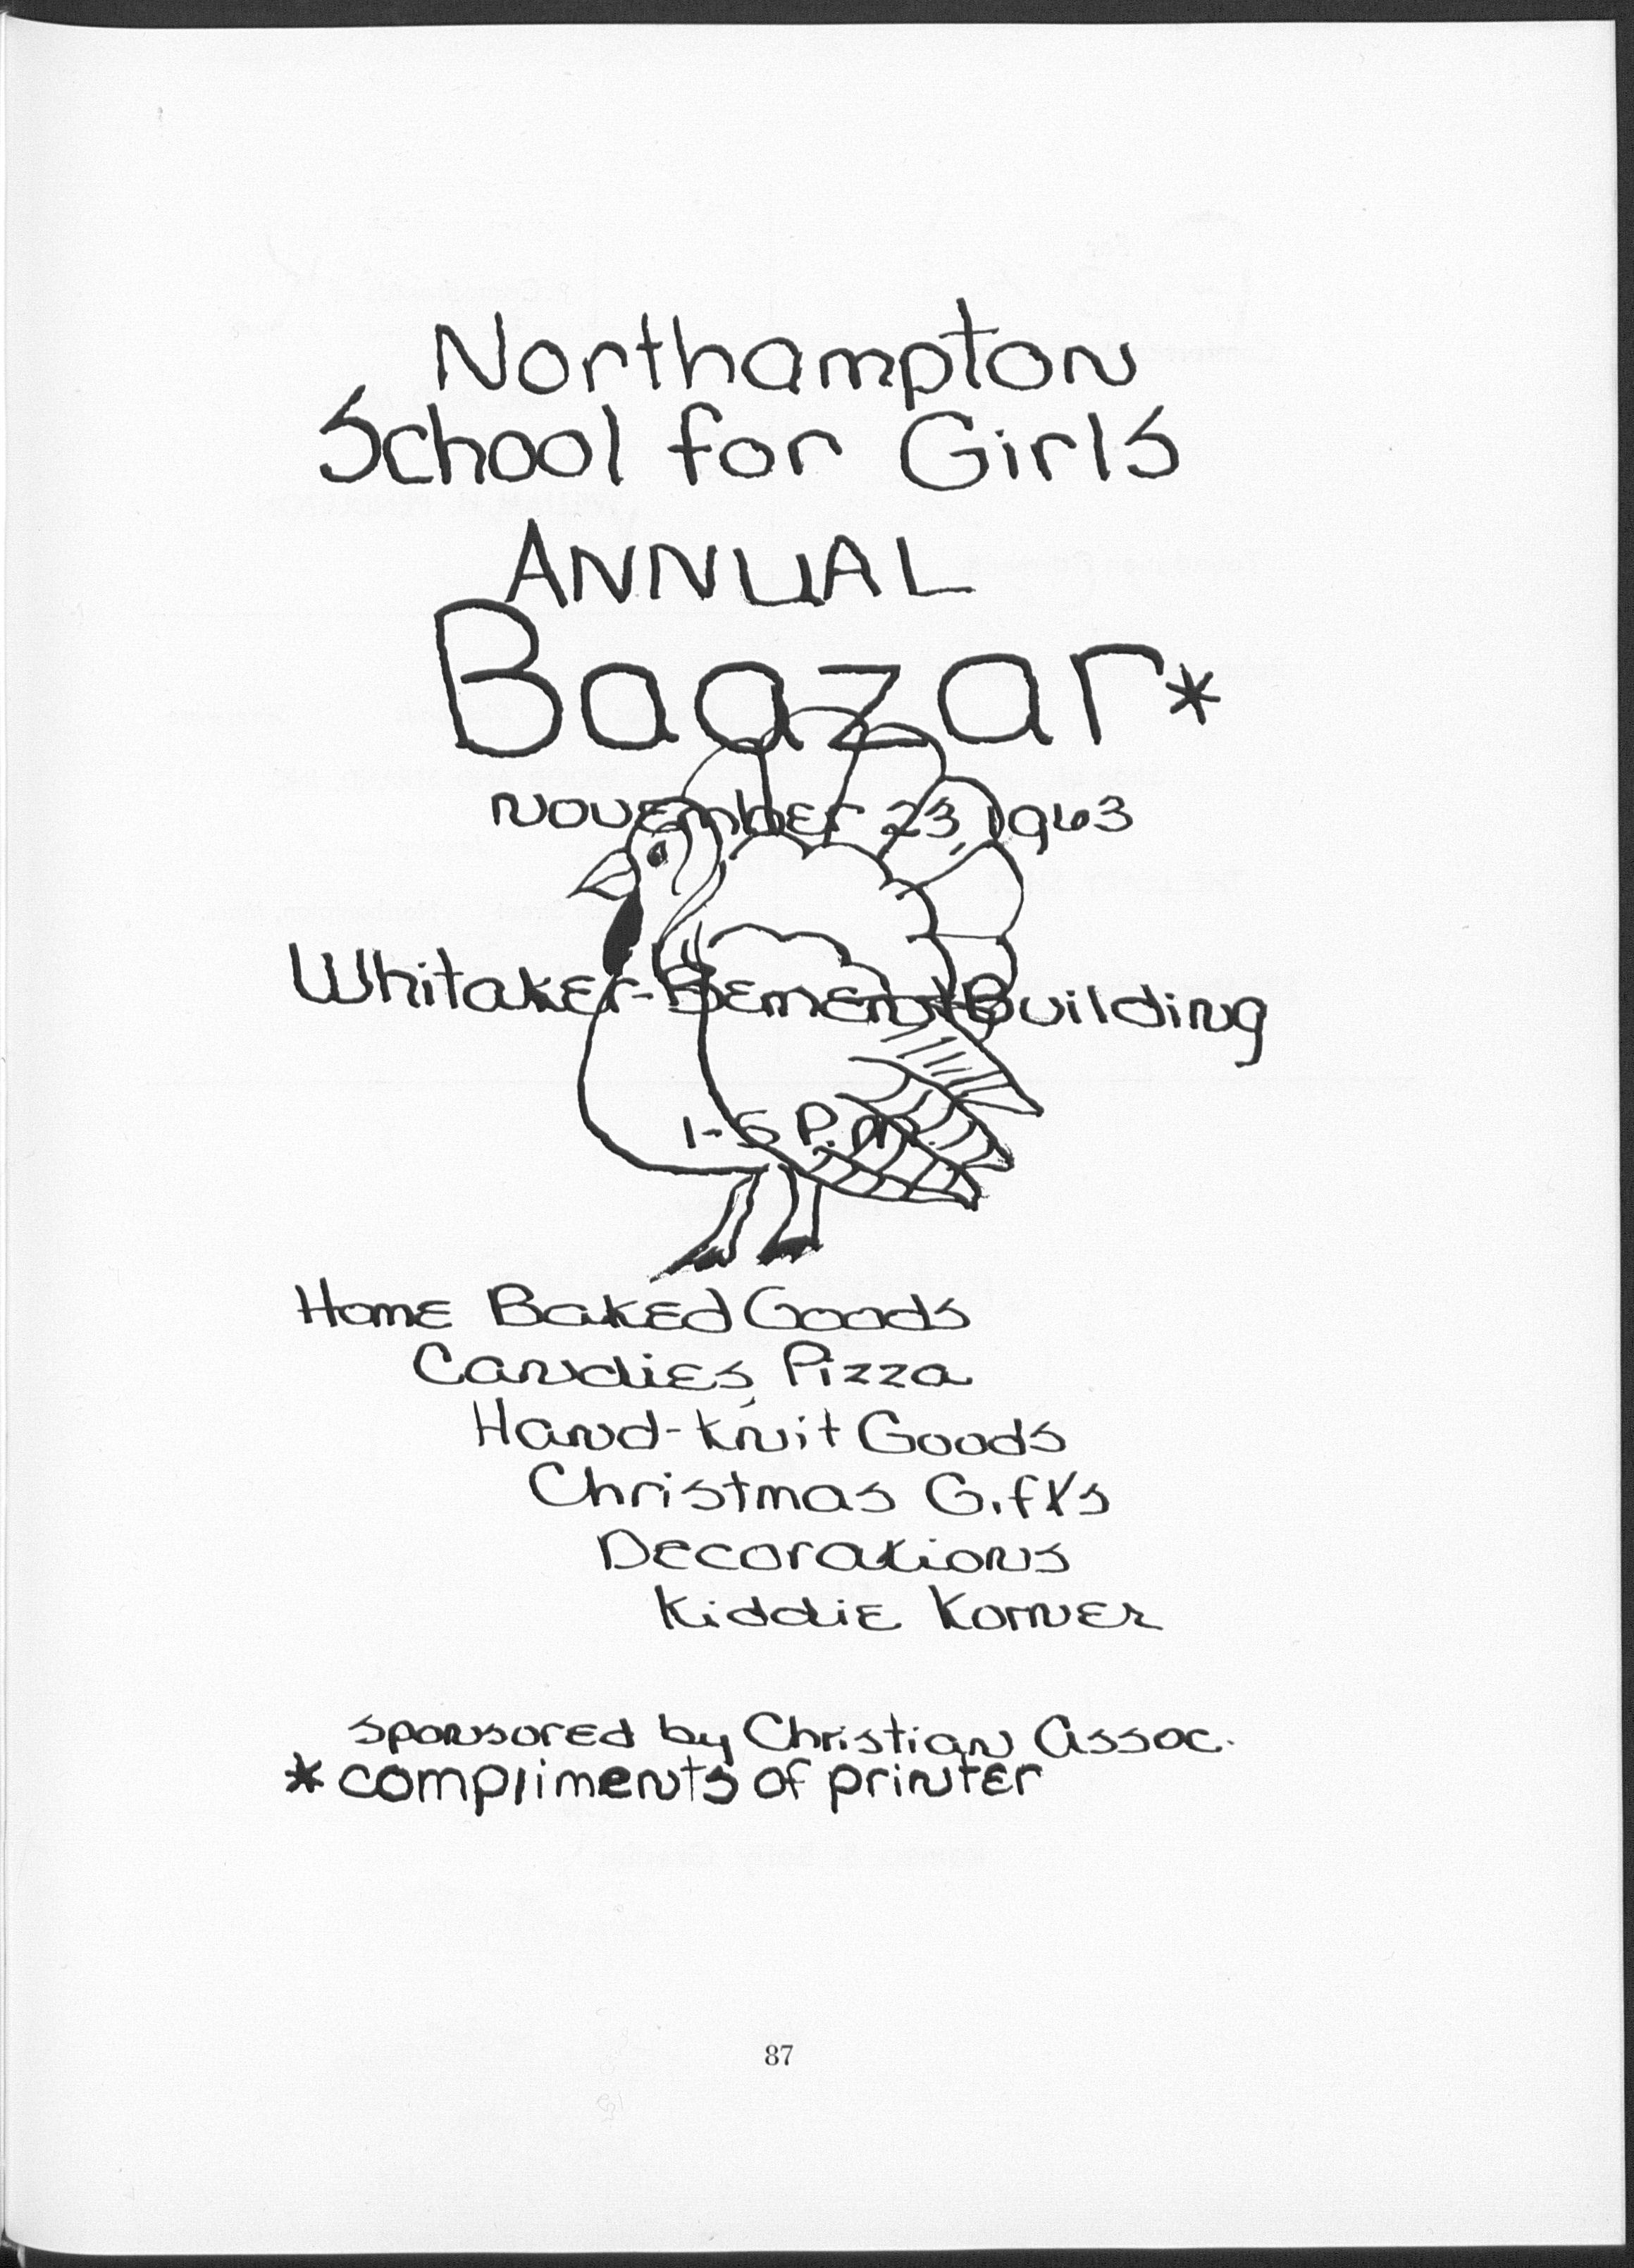 Northampton
School for Girls
ANNUAL
Baazar*
November 23, 1963
Whitaker-Bement Building
1-5 P.m.
Home Baked Goods
Candies, Pizza
Hand-Knit Goods
Christmas Gifts
Decorations
Kiddie Korner
sponsored by Christian Assoc.
* compliments of printer
87